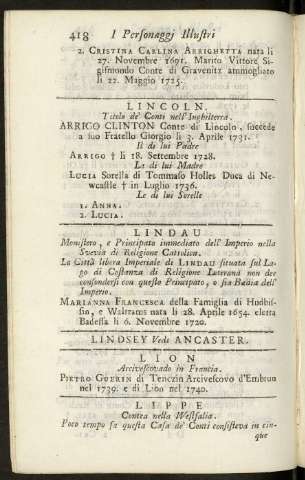 418 I Personaggi Illustri
2. CRISTINA CARLINA ARRIGHETTA nata li
27. Novembre 1691. Marito Vittore Si-
gismondo Conte di Gravenitz ammogliato
li 22. Maggio 1725.
LINCOLN.
Titolo de' Conti nell'Inghilterra.
ARRIGO CLINTON Conte di Lincoln, succede
a suo Fratello Giorgio li 3. Aprile 1731.
Il di lui Padre
ARRIGO † li 18. Settembre 1728.
La di lui Madre
LUCIA Sorella di Tommaso Holles Duca di Ne-
wcastle † in Luglio 1736.
Le di lui Sorelle
1. ANNA.
2. LUCIA.
LINDAU
Monistero, e Principato immediato dell'Imperio nella
Svevia di Religione Cattolica.
La Città libera Imperiale di LINDAU situata sul La-
go di Costanza di Religione Luterana non dee
confondersi con questo Principato, o sia Badia dell'
Imperio.
MARIANNA FRANCESCA della Famiglia di Hundbis-
sin, e Waltrams nata li 28. Aprile 1654. eletta
Badessa li 6. Novembre 1720.
LINDSEY Vede ANCASTER.
LION
Arcivescovado in Francia.
PIETRO GUERIN di Tenczin Arcivescovo d'Embrun
nel 1739. e di Lion nel 1740.
LIPPE
Contea nella Westfalia.
Poco tempo fa questa Casa de' Conti consisteva in cin-
que